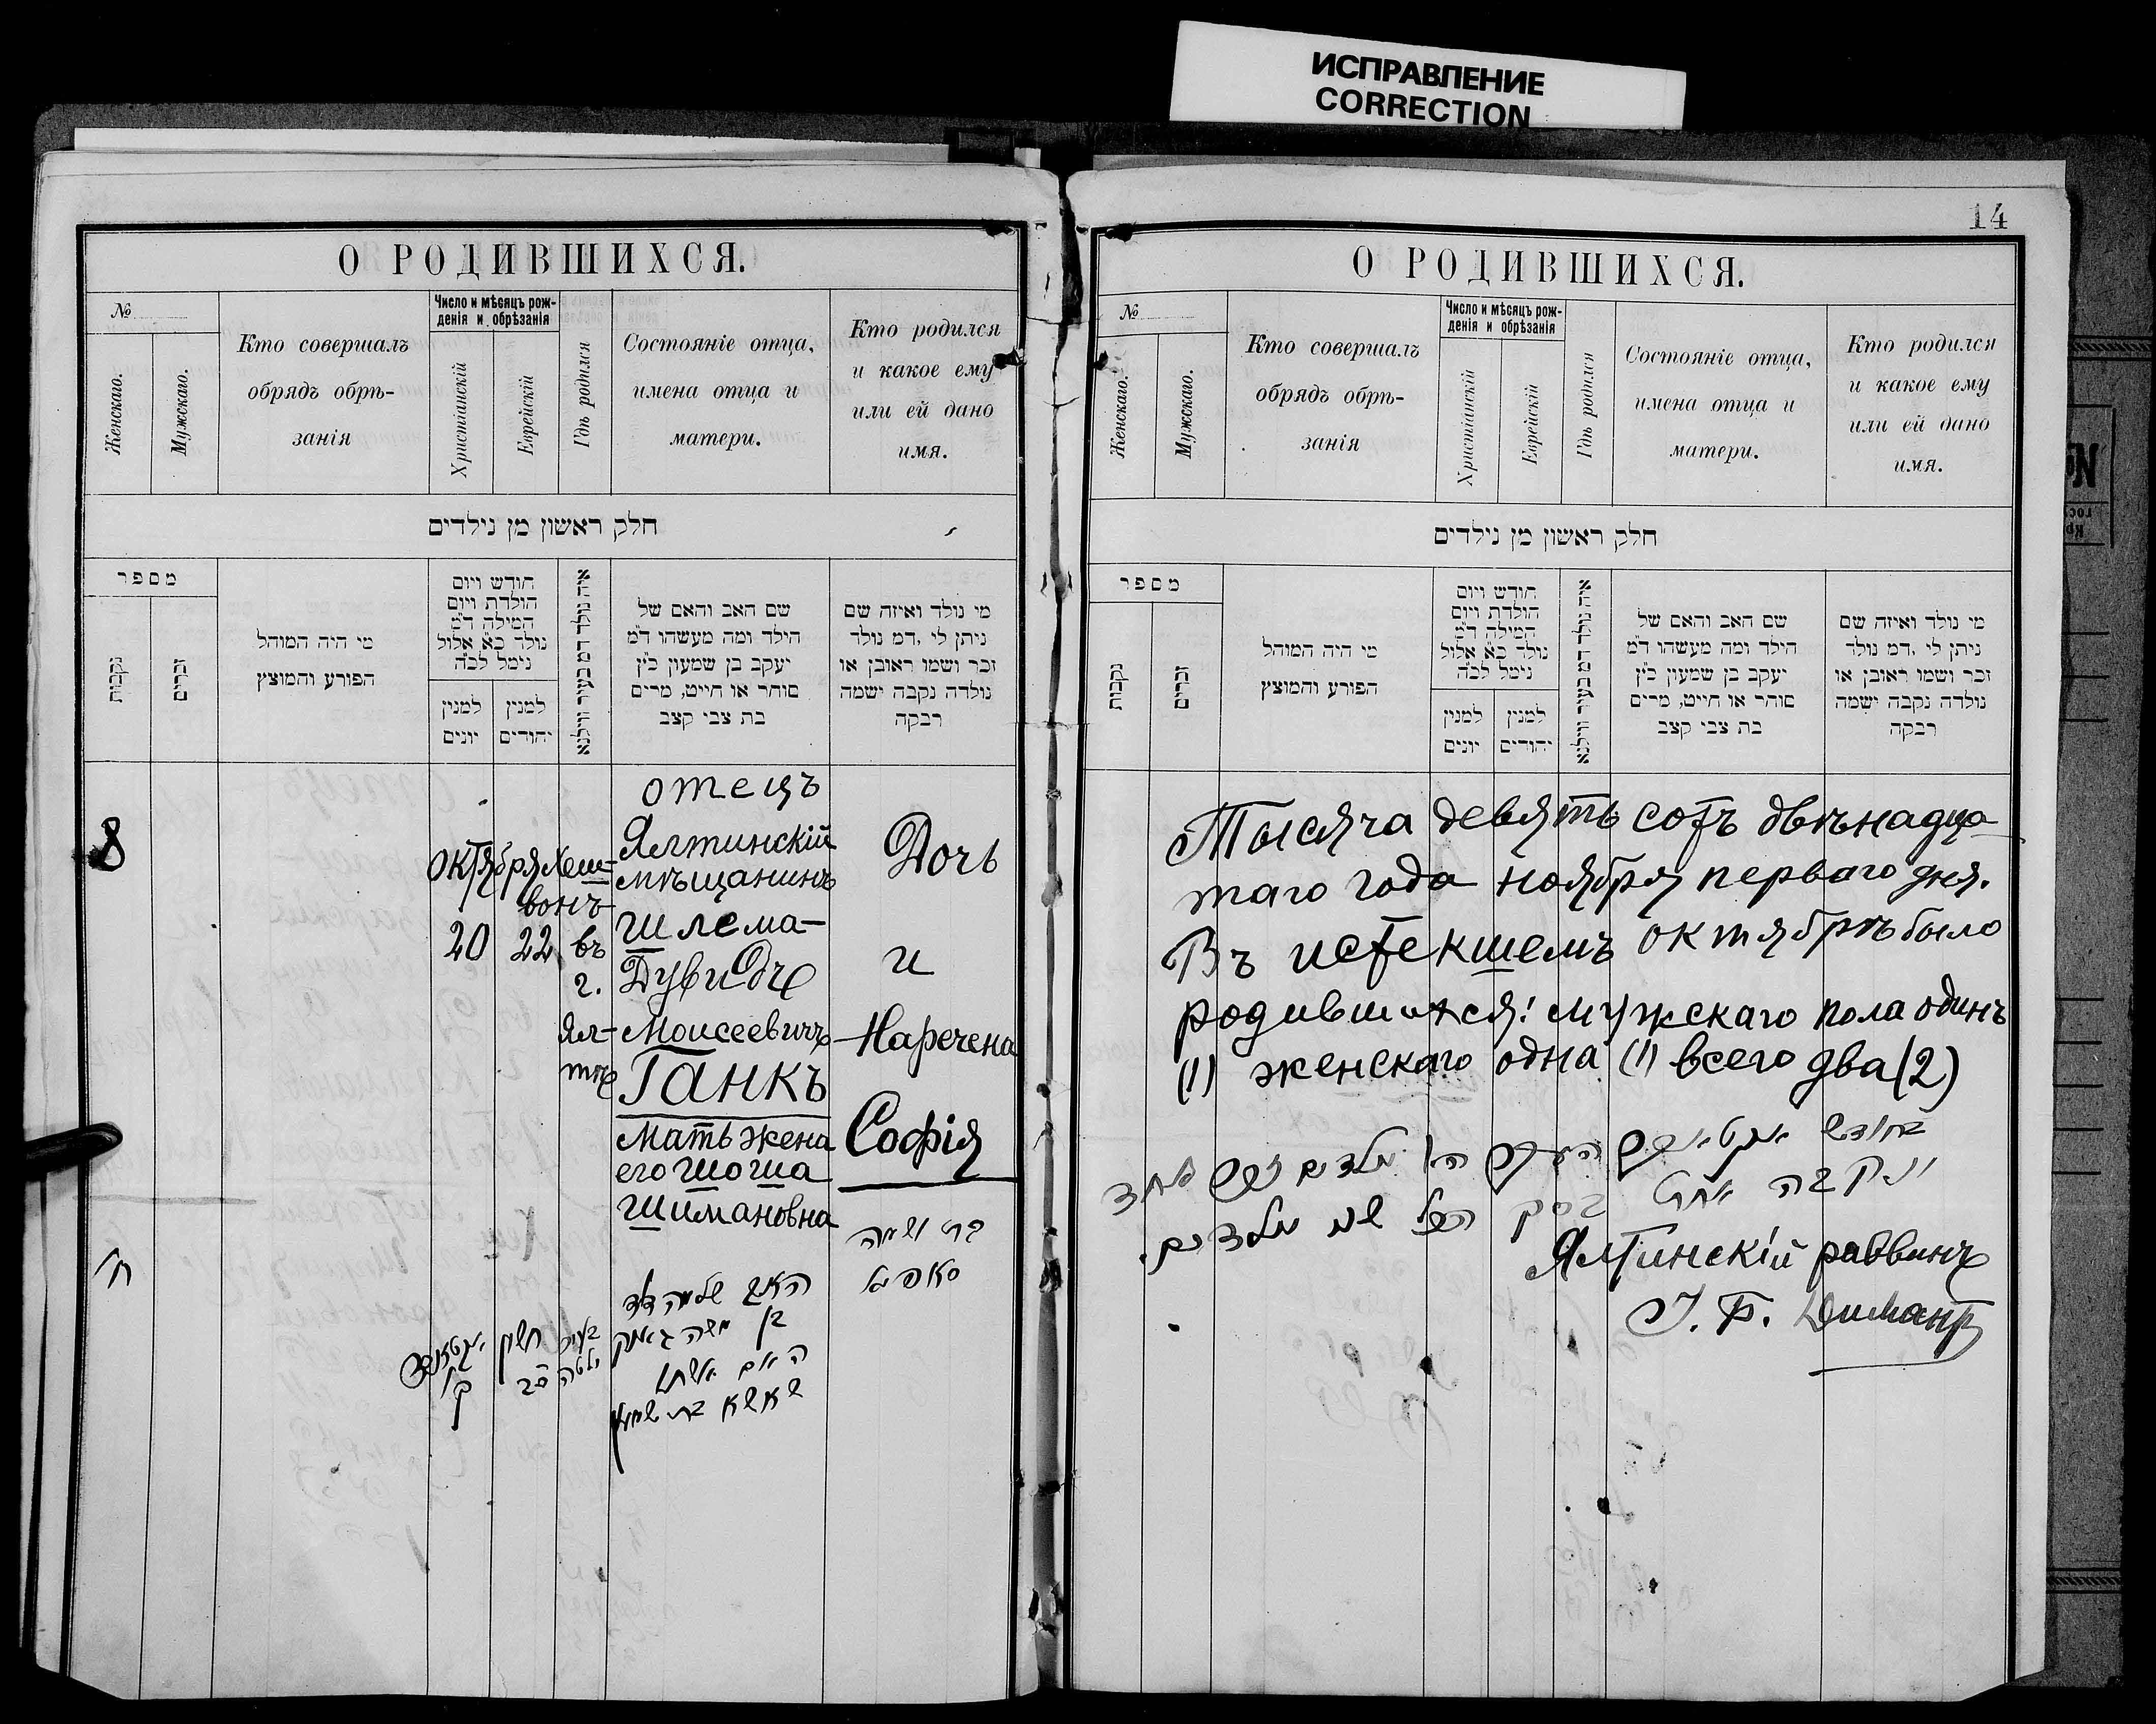 ИСПРАВЛЕНИЕ
CORRECTION
О РОДИВШИХСЯ.
№
Женскаго.
Мужскаго.
Кто совершалъ
обрядъ обрѣ-
занія
Число и мѣсяцъ рож-
денія и обрѣзанія
Христіанскій
Еврейскій
Гдѣ родился
Состояніе отца,
имена отца и
матери.
Кто родился
и какое ему
или ей дано
имя.
חלק ראשון מן נילדים
מספר
נקבות
זכרים
מי היה המוהל
הפורע והמוצץ
חודש ויום
הולדת ויום
המילה ד״מ
נולד כ״א אלול
נימל לכ״ה
למנין
יונים
למנין
יהודים
איה נולד דמ בעיר ווילנא
שם האב והאם של
הילד ומה מעשהו ד״מ
יעקב בן שמעון כ״ץ
סוחר או חייט, מרים
בת צבי קצב
מי נולד ואיזה שם
ניתן לי ,דמ נולד
זכר ושמו ראובן או
נולדה נקבה ישמה
רבקה
8
октября
20
Хеш-
вонъ
22
въ
г.
Ял-
тѣ
отецъ
Ялтинскій
мѣщанинъ
Шлема-
Дувидъ
Моисеевичъ
Ганкъ
Мать жена
его Шоша
Шимановна
Дочь
и
Наречена
Софія
ח׳
חשון
כב
בעיר
יאלטה
האב שלמה דוד
בן משה גאנק
האם אשתו
שאשא בת שמעון
בת ושמה
14
О РОДИВШИХСЯ.
№
Женскаго.
Мужскаго.
Кто совершалъ
обрядъ обрѣ-
занія
Число и мѣсяцъ рож-
денія и обрѣзанія
Христіанскій
Еврейскій
Гдѣ родился
Состояніе отца,
имена отца и
матери.
Кто родился
и какое ему
или ей дано
имя.
חלק ראשון מן נילדים
מספר
נקבות
זכרים
מי היה המוהל
הפורע והמוצץ
חודש ויום
הולדת ויום
המילה ד״מ
נולד כ״א אלול
נימל לכ״ה
למנין
יונים
למנין
יהודים
איה נולד דמ בעיר ווילנא
שם האב והאם של
הילד ומה מעשהו ד״מ
יעקב בן שמעון כ״ץ
סוחר או חייט, מרים
בת צבי קצב
מי נולד ואיזה שם
ניתן לי ,דמ נולד
זכר ושמו ראובן או
נולדה נקבה ישמה
רבקה
Тысяча девять сотъ двѣнадца-
таго года ноября перваго дня.
Въ истекшемъ октябрѣ было
родившихся: мужскаго пола одинъ
(1) женскаго одна (1) всего два (2)
בחודש
ונקבה אחת
Ялтинскій раввинъ